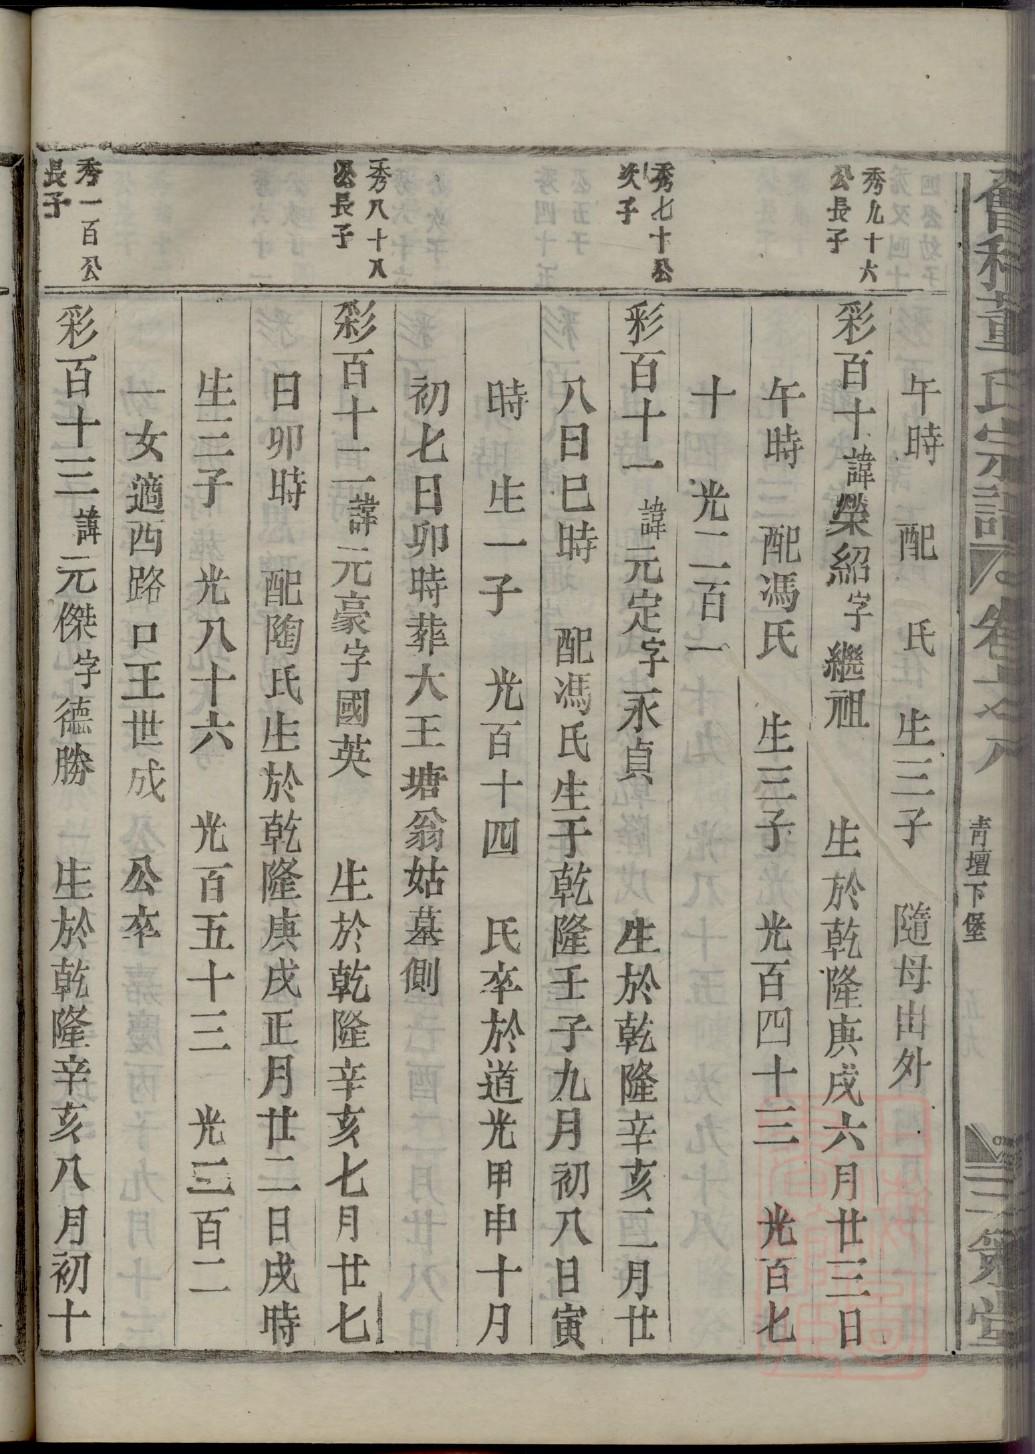 董氏宗譜
卷之八
青壇下堡
三策堂
午時　配　氏　生三子　隨母出外
秀九十六
公長子
彩百十諱榮紹字繼祖　生於乾隆庚戌六月廿三日
午時　配馮氏　生三子　光百四十三　光百七
十　光二百一
秀七十公
次子
彩百十一諱元定字永貞　生於乾隆辛亥二月廿
八日巳時　配馮氏生于乾隆壬子九月初八日寅
時　生一子　光百十四　氏卒於道光甲申十月
初七日卯時葬大王塘翁姑墓側
秀八十八
公長子
彩百十二諱元豪字國英　生於乾隆辛亥七月廿七
日卯時　配陶氏生於乾隆庚戌正月廿二日戌時
生三子　光八十六　光百五十三　光三百二
一女適西路口王世成　公卒
秀一百公
長子
彩百十三諱元傑字德勝　生於乾隆辛亥八月初十